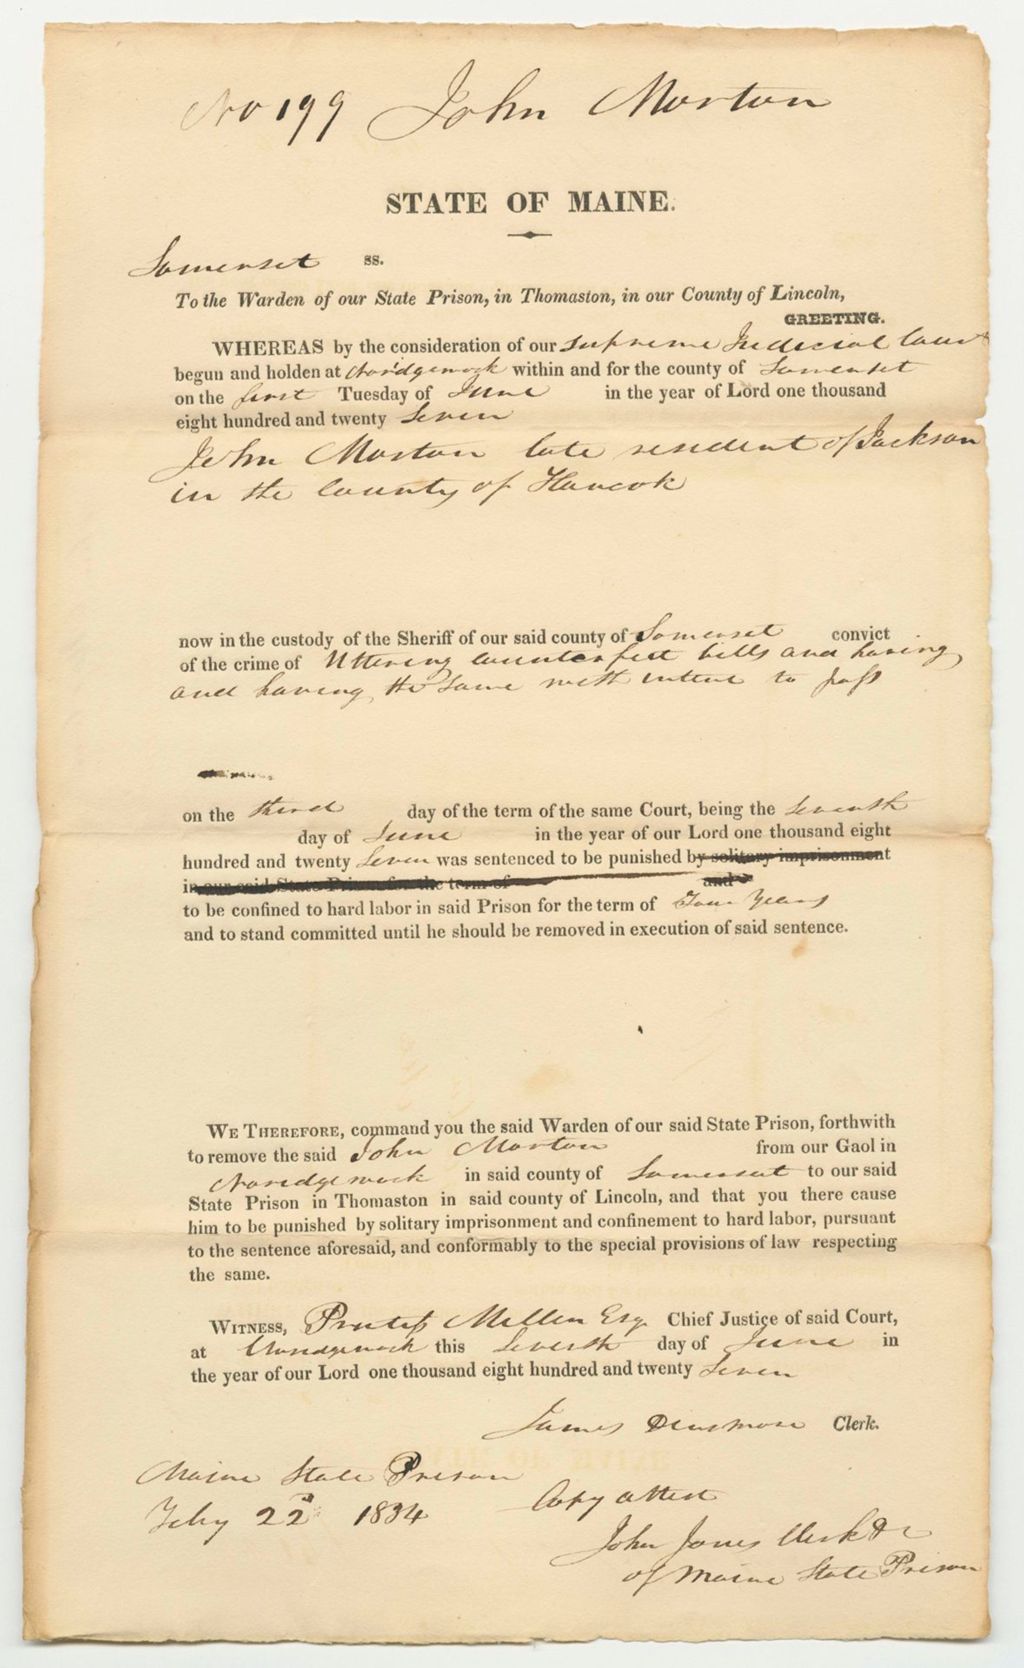 No 199 John Morton
STATE OF MAINE.
Somerset ss.
To the Warden of our State Prison, in Thomaston, in our County of Lincoln,
GREETING.
WHEREAS by the consideration of our Supreme Judicial Court
begun and holden at Norridgewock within and for the county of Somerset
on the first Tuesday of June in the year of Lord one thousand
eight hundred and twenty Seven
John Morton late resident of Jackson
in the County of Hancok
now in the custody of the Sheriff of our said county of Somerset convict
of the crime of Uttering Counterfeit bills and having
and having the same with intent to pass
on the third day of the term of the same Court, being the Seventh
day of June in the year of our Lord one thousand eight
hundred and twenty Seven was sentenced to be punished by solitary imprisonment
in our said State Prison for the term of and
to be confined to hard labor in said Prison for the term of Four Years
and to stand committed until he should be removed in execution of said sentence.
WE THEREFORE, command you the said Warden of our said State Prison, forthwith
to remove the said John Morton from our Gaol in
Norridgewock in said county of Somerset to our said
State Prison in Thomaston in said county of Lincoln, and that you there cause
him to be punished by solitary imprisonment and confinement to hard labor, pursuant
to the sentence aforesaid, and conformably to the special provisions of law respecting
the same.
WITNESS, Prentiss Mellen Esq. Chief Justice of said Court,
at Norridgewock this Seventh day of June in
the year of our Lord one thousand eight hundred and twenty Seven
James Dinsmore Clerk.
Maine State Prison
Feby 22d 1834
Copy attest
John Jones Clerk &c
of Maine State Prison